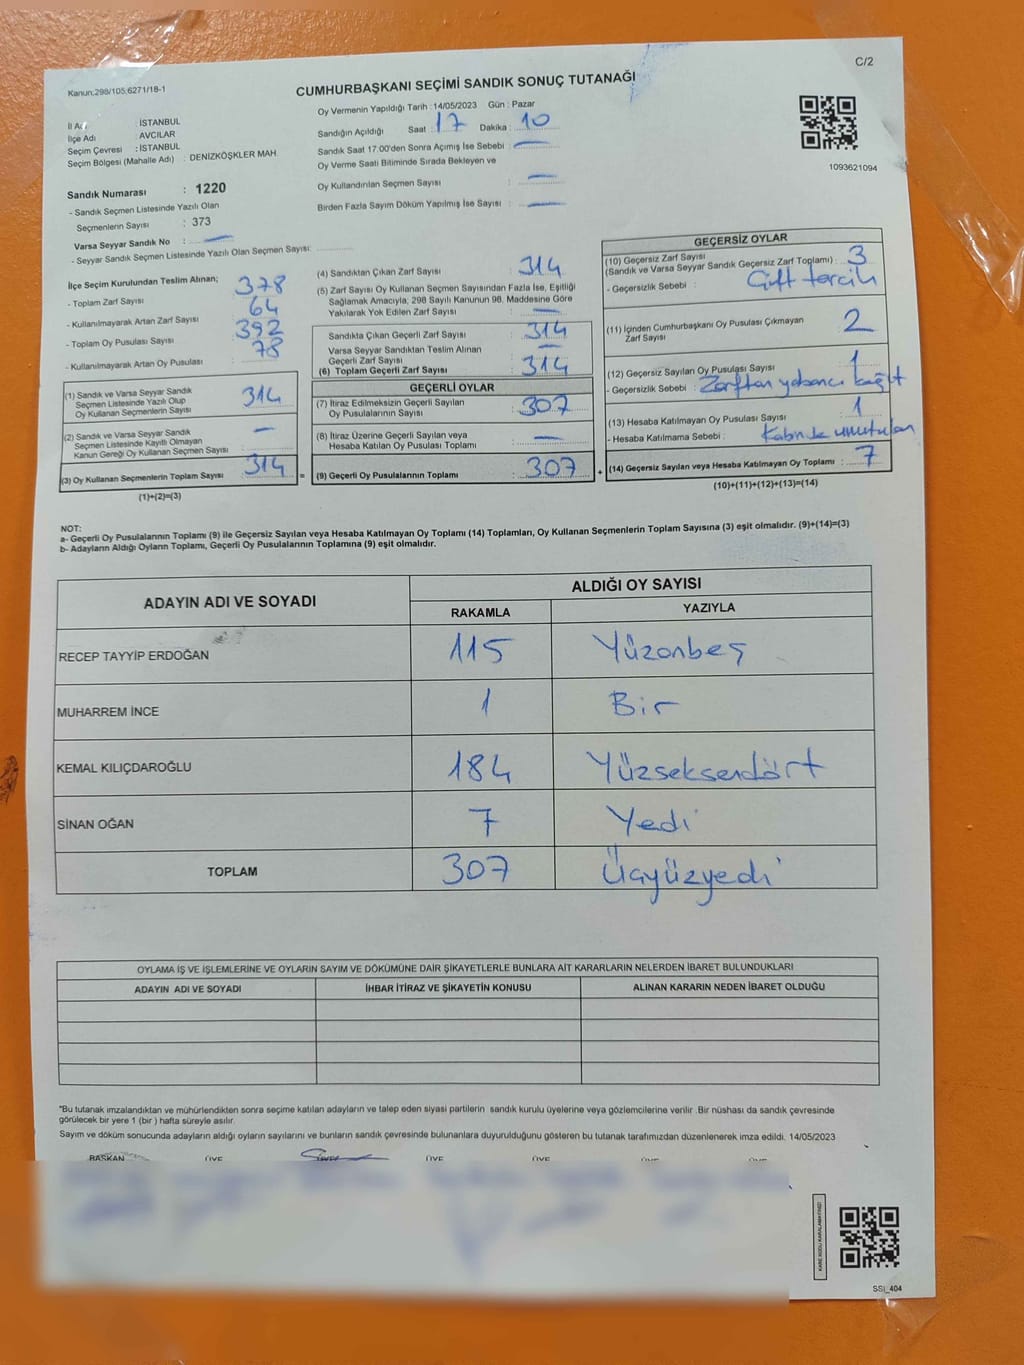 C/2
Kanun:298/105;6271/18-1
CUMHURBAŞKANI SEÇİMİ SANDIK SONUÇ TUTANAĞI
Oy Vermenin Yapıldığı Tarih :14/05/2023 Gün : Pazar
İl Adı : İSTANBUL
İlçe Adı : AVCILAR
Seçim Çevresi : İSTANBUL
Seçim Bölgesi (Mahalle Adı) : DENİZKÖŞKLER MAH.
Sandığın Açıldığı Saat : 17 Dakika : 10
Sandık Saat 17:00'den Sonra Açımış İse Sebebi : —
Oy Verme Saati Bitiminde Sırada Bekleyen ve
Oy Kullandırılan Seçmen Sayısı : —
Birden Fazla Sayım Döküm Yapılmış İse Sayısı : —
1093621094
Sandık Numarası : 1220
- Sandık Seçmen Listesinde Yazılı Olan
Seçmenlerin Sayısı : 373
Varsa Seyyar Sandık No : —
- Seyyar Sandık Seçmen Listesinde Yazılı Olan Seçmen Sayısı:
İlçe Seçim Kurulundan Teslim Alınan;
- Toplam Zarf Sayısı : 378
- Kullanılmayarak Artan Zarf Sayısı : 64
- Toplam Oy Pusulası Sayısı : 392
- Kullanılmayarak Artan Oy Pusulası : 78
(1) Sandık ve Varsa Seyyar Sandık
Seçmen Listesinde Yazılı Olup
Oy Kullanan Seçmenlerin Sayısı : 314
(2) Sandık ve Varsa Seyyar Sandık
Seçmen Listesinde Kayıtlı Olmayan
Kanun Gereği Oy Kullanan Seçmen Sayısı : —
(3) Oy Kullanan Seçmenlerin Toplam Sayısı : 314 =
(1)+(2)=(3)
(4) Sandıktan Çıkan Zarf Sayısı : 314
(5) Zarf Sayısı Oy Kullanan Seçmen Sayısından Fazla İse, Eşitliği
Sağlamak Amacıyla, 298 Sayılı Kanunun 98. Maddesine Göre
Yakılarak Yok Edilen Zarf Sayısı : —
Sandıkta Çıkan Geçerli Zarf Sayısı : 314
Varsa Seyyar Sandıktan Teslim Alınan
Geçerli Zarf Sayısı : —
(6) Toplam Geçerli Zarf Sayısı : 314
GEÇERLİ OYLAR
(7) İtiraz Edilmeksizin Geçerli Sayılan
Oy Pusulalarının Sayısı : 307
(8) İtiraz Üzerine Geçerli Sayılan veya
Hesaba Katılan Oy Pusulası Toplamı : —
(9) Geçerli Oy Pusulalarının Toplamı : 307 +
GEÇERSİZ OYLAR
(10) Geçersiz Zarf Sayısı
(Sandık ve Varsa Seyyar Sandık Geçersiz Zarf Toplamı) : 3
- Geçersizlik Sebebi : Çift tercih
(11) İçinden Cumhurbaşkanı Oy Pusulası Çıkmayan
Zarf Sayısı : 2
(12) Geçersiz Sayılan Oy Pusulası Sayısı : 1
- Geçersizlik Sebebi : Zarftan yabancı kağıt
(13) Hesaba Katılmayan Oy Pusulası Sayısı : 1
- Hesaba Katılmama Sebebi : Kabinde unutulan
(14) Geçersiz Sayılan veya Hesaba Katılmayan Oy Toplamı : 7
(10)+(11)+(12)+(13)=(14)
NOT:
a- Geçerli Oy Pusulalarının Toplamı (9) ile Geçersiz Sayılan veya Hesaba Katılmayan Oy Toplamı (14) Toplamları, Oy Kullanan Seçmenlerin Toplam Sayısına (3) eşit olmalıdır. (9)+(14)=(3)
b- Adayların Aldığı Oyların Toplamı, Geçerli Oy Pusulalarının Toplamına (9) eşit olmalıdır.
ADAYIN ADI VE SOYADI
ALDIĞI OY SAYISI
RAKAMLA YAZIYLA
RECEP TAYYİP ERDOĞAN 115 Yüzonbeş
MUHARREM İNCE 1 Bir
KEMAL KILIÇDAROĞLU 184 Yüzseksendört
SİNAN OĞAN 7 Yedi
TOPLAM 307 Üçyüzyedi
OYLAMA İŞ VE İŞLEMLERİNE VE OYLARIN SAYIM VE DÖKÜMÜNE DAİR ŞİKAYETLERLE BUNLARA AİT KARARLARIN NELERDEN İBARET BULUNDUKLARI
ADAYIN ADI VE SOYADI İHBAR İTİRAZ VE ŞİKAYETİN KONUSU ALINAN KARARIN NEDEN İBARET OLDUĞU
"Bu tutanak imzalandıktan ve mühürlendikten sonra seçime katılan adayların ve talep eden siyasi partilerin sandık kurulu üyelerine veya gözlemcilerine verilir. Bir nüshası da sandık çevresinde
görülecek bir yere 1 (bir) hafta süreyle asılır.
Sayım ve döküm sonucunda adayların aldığı oyların sayılarını ve bunların sandık çevresinde bulunanlara duyurulduğunu gösteren bu tutanak tarafımızdan düzenlenerek imza edildi. 14/05/2023
BAŞKAN ÜYE ÜYE ÜYE ÜYE ÜYE
SSİ_404